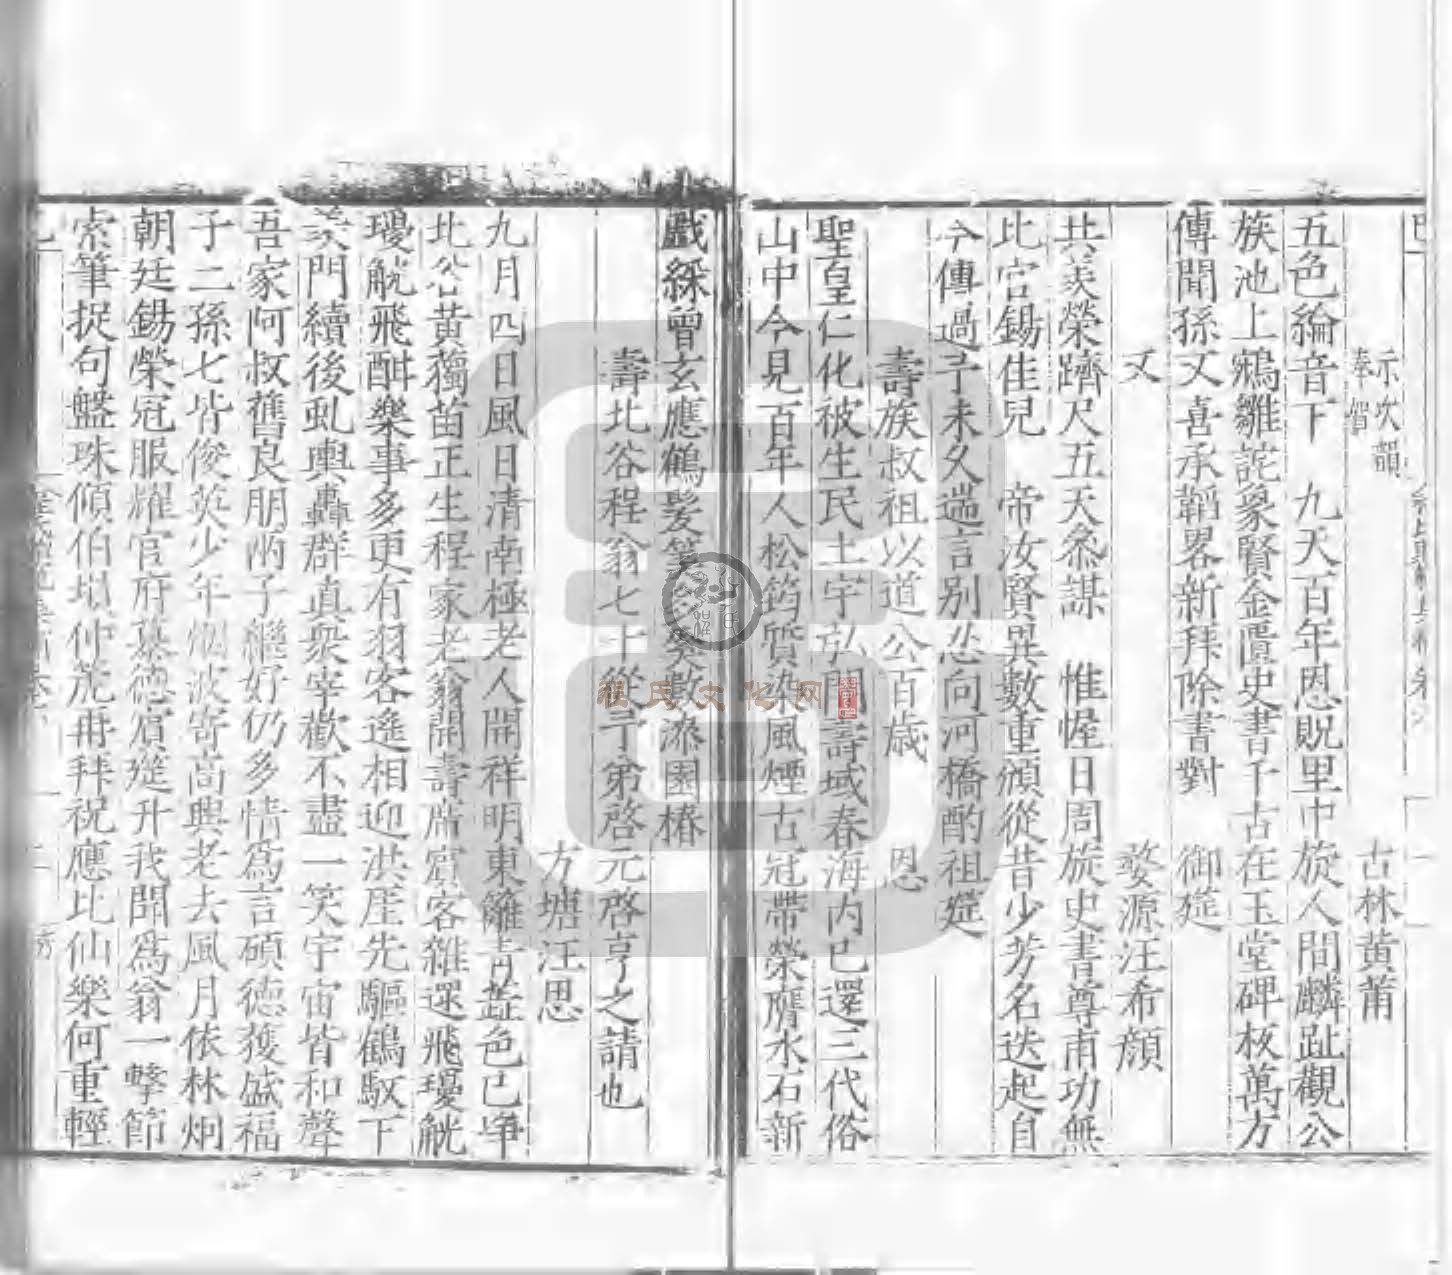 示次韻
奉智
古林黃莆
五色綸音下　九天百年恩貺里中旋人間麟趾觀公
族池上鵷雛詫象賢金匱史書千古在玉堂碑板萬方
傳聞孫又喜承韜畧新拜除書對　御筵
又
婺源汪希顔
共羡榮躋尺五天叅謀　惟幄日周旋史書尊甫功無
比官錫佳兒　帝汝賢異數重頒從昔少芳名迭起自
今傳過予未久遄言别恋向河橋酌祖筵
壽族叔祖以道公百歳　恩
聖皇仁化被生民土宇弘開壽域春海内已還三代俗
山中今見百年人松筠質染風煙古冠帶榮膺水石新
戲綵曾玄應鶴髪筭莫數漆園椿
壽北谷程翁七十從子第啓元啓亨之請也
方塘汪思
九月四日風日清南極老人開祥明東籬菁蕋色已崢
北谷黃獨苗正生程家老翁開壽席賓客雜遝飛瓊觥
瓊觥飛酣樂事多更有羽客遙相迎洪厓先驅鶴馭下
羡門續後虬輿轟群真衆宰歡不盡一笑宇宙皆和聲
吾家阿叔舊良朋兩子繼好仍多情爲言碩德獲盛福
子二孫七皆俊英少年烟波寄高興老去風月依林坰
朝廷錫榮冠服耀官府慕德賔筵升我聞爲翁一擊節
索筆捉句盤珠傾伯塤仲箎再拜祝應比仙樂何重輕